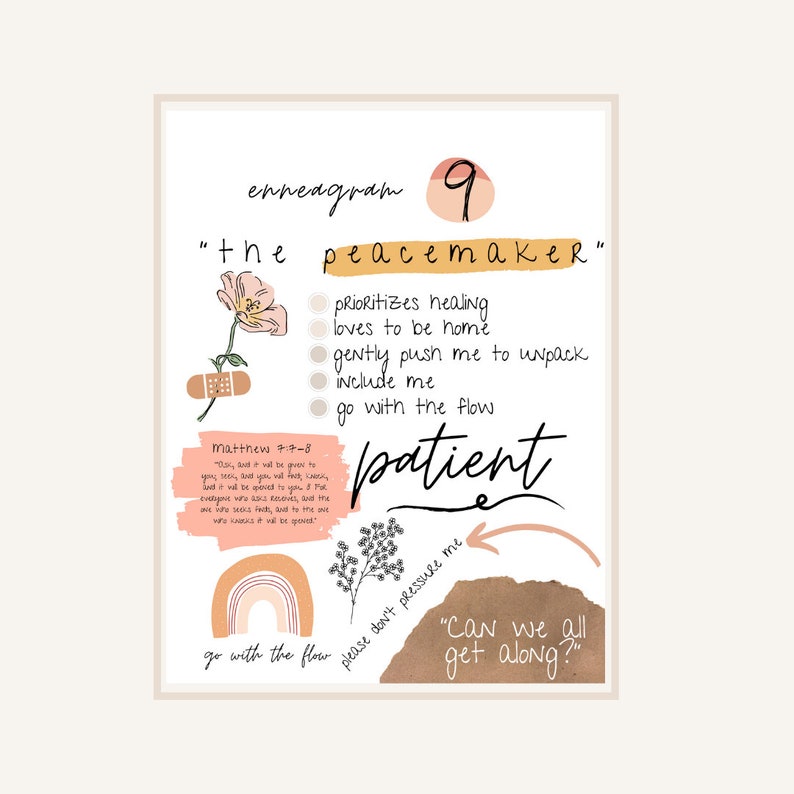 enneagram 9
"the peacemaker"
prioritizes healing
loves to be home
gently push me to unpack
include me
go with the flow
patient
Matthew 7:7-8
"Ask, and it will be given to
you; seek, and you will find; knock,
and it will be opened to you. 8 For
everyone who asks receives, and the
one who seeks finds, and to the one
who knocks it will be opened."
please don't pressure me
"Can we all
get along?"
go with the flow